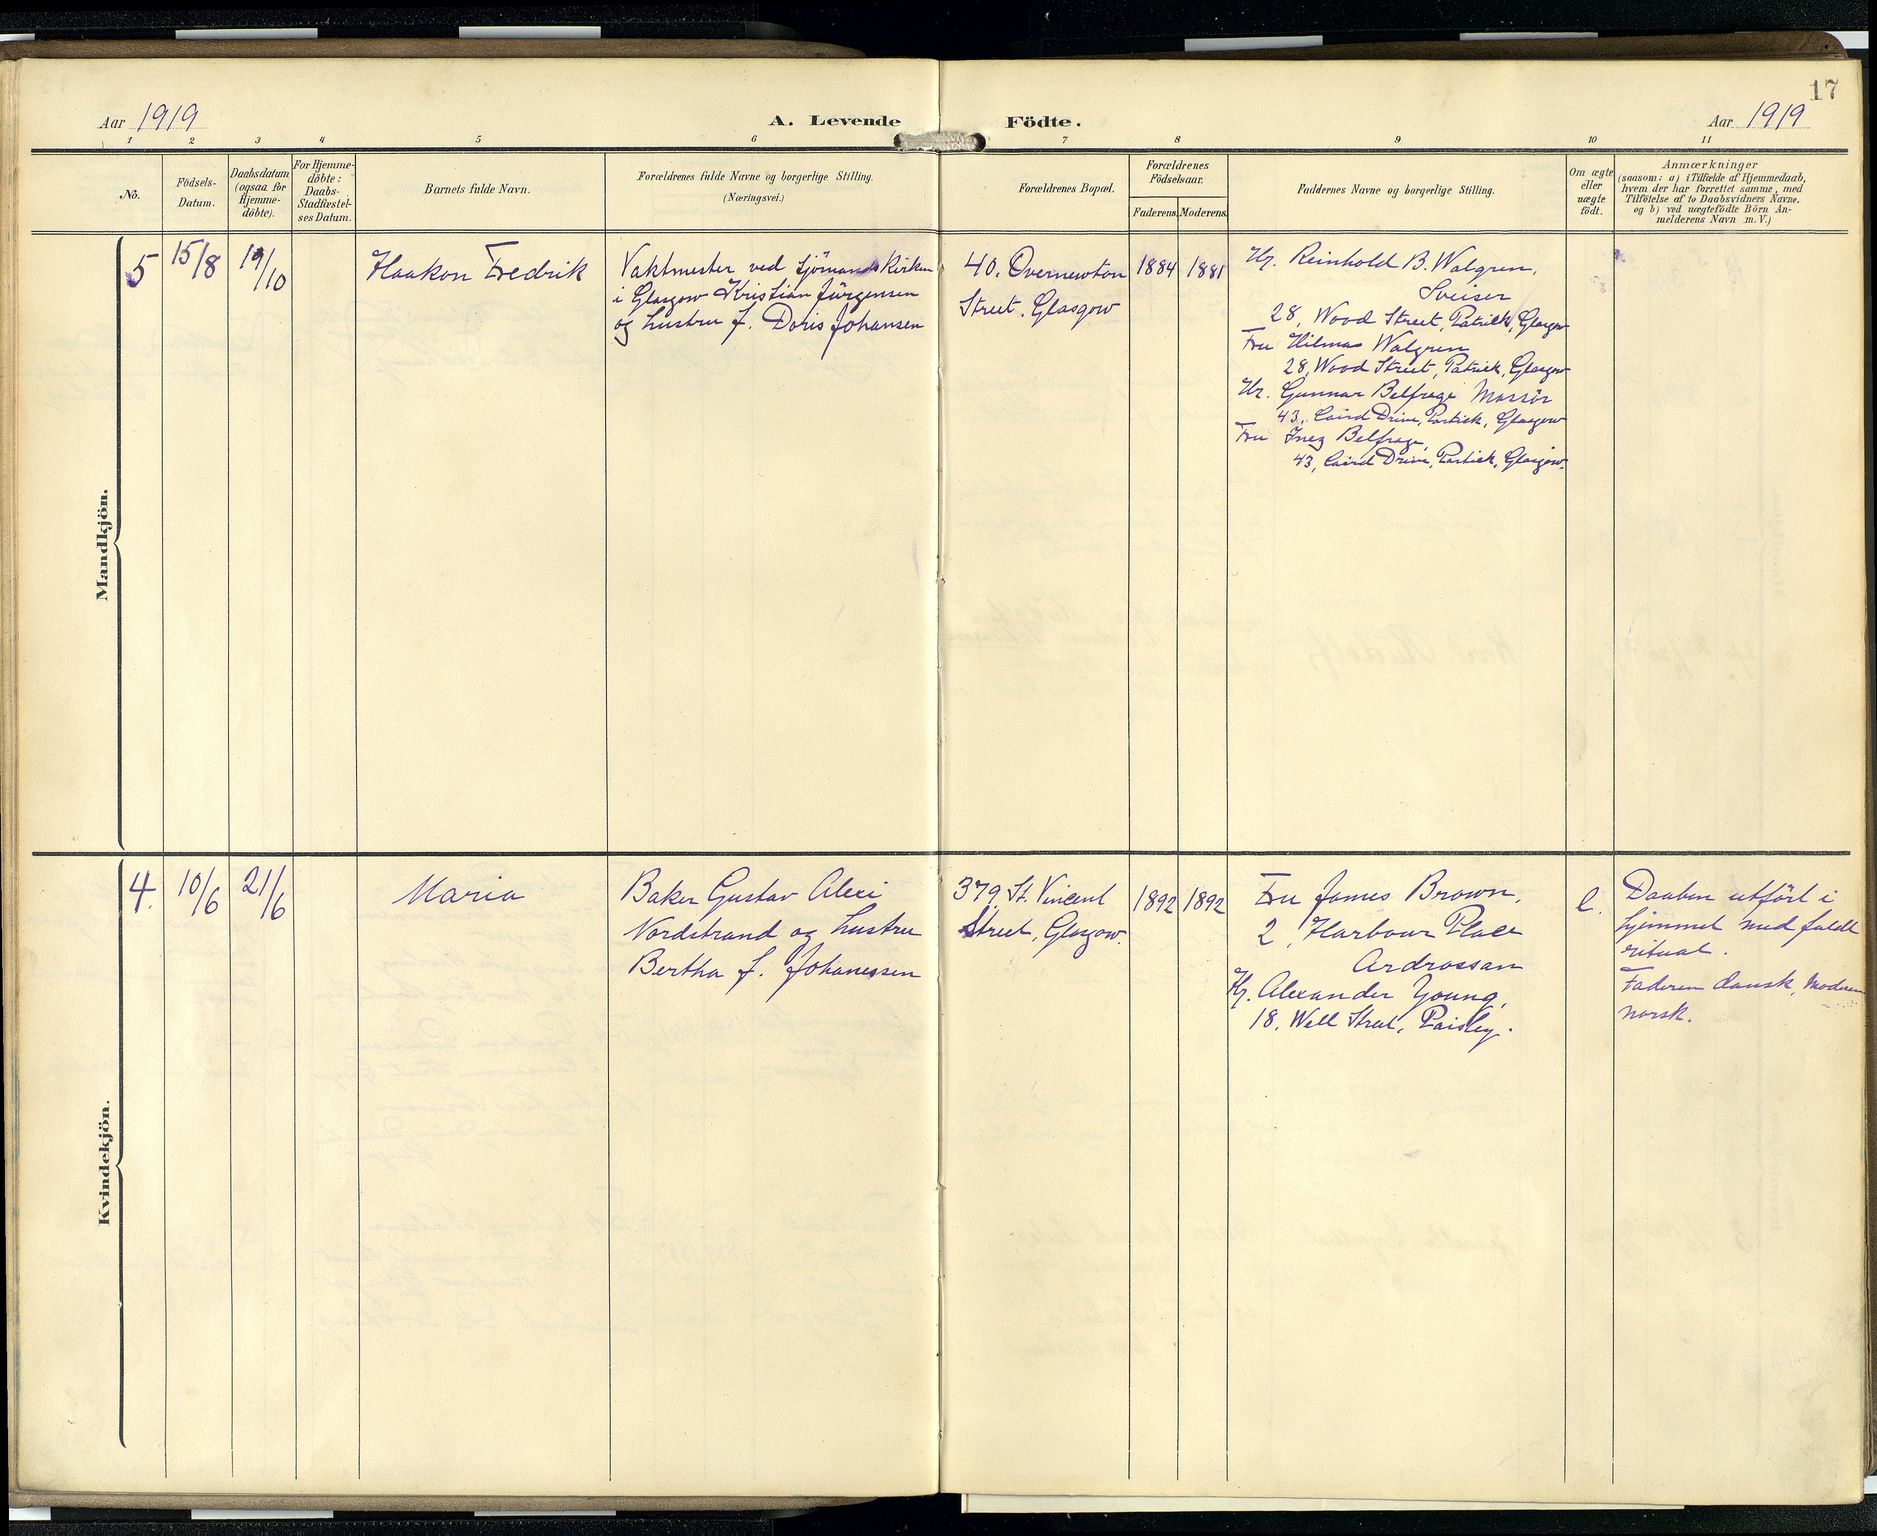 17
Aar 1919
A. Levende Födte.
Aar 1919
1 2 3 4 5 6 7 8 9 10 11
No.
Födsels-
Datum.
Daabsdatum
(ogsaa for
Hjemme-
döbte).
For Hjemme-
döbte:
Daabs-
Stadfæstel-
ses Datum.
Barnets fulde Navn.
Forældrenes fulde Navne og borgerlige Stilling.
(Næringsvei.)
Forældrenes Bopæl.
Forældrenes
Födselsaar.
Faderens. Moderens.
Faddernes Navne og borgerlige Stilling.
Om ægte
eller
uægte
födt.
Anmærkninger
(saasom: a) i Tilfælde af Hjemmedaab,
hvem der har forrettet samme, med
Tilföielse af to Daabsvidners Navne.
og b) ved uægtefödte Börn An-
melderens Navn m. V.)
Mandkjön.
5
15/8
19/10
Haakon Fredrik
Vaktmester ved Sjömandskirken
i Glasgow Kristian Jürgensen
og hustru f. Doris Johansen
40. Overnewton
Street. Glasgow
1884
1881
Hr. Reinhold B. Walgren,
Sveiser
28, Wood Street, Patrick, Glasgow
Fru Hilma Walgren
28, Wood Street, Patrick, Glasgow
Hr. Gunnar Belfrage Massör
43, Laird Drive, Partick, Glasgow
Fru Inez Belfrage,
43, Laird Drive, Partick, Glasgow.
Kvindekjön.
4.
10/6
21/6
Maria
Baker Gustav Alexi
Nordstrand og hustru
Bertha f. Johanessen
379, St. Vincent
Street, Glasgow.
1892
1892
Fru James Brown,
2, Harbour Place
Ardrossan
Hr. Alexander Young,
18, Well Street, Paisley.
Daaben utført i
hjemmet med fuldt
ritual.
Faderen dansk, Moderen
norsk.